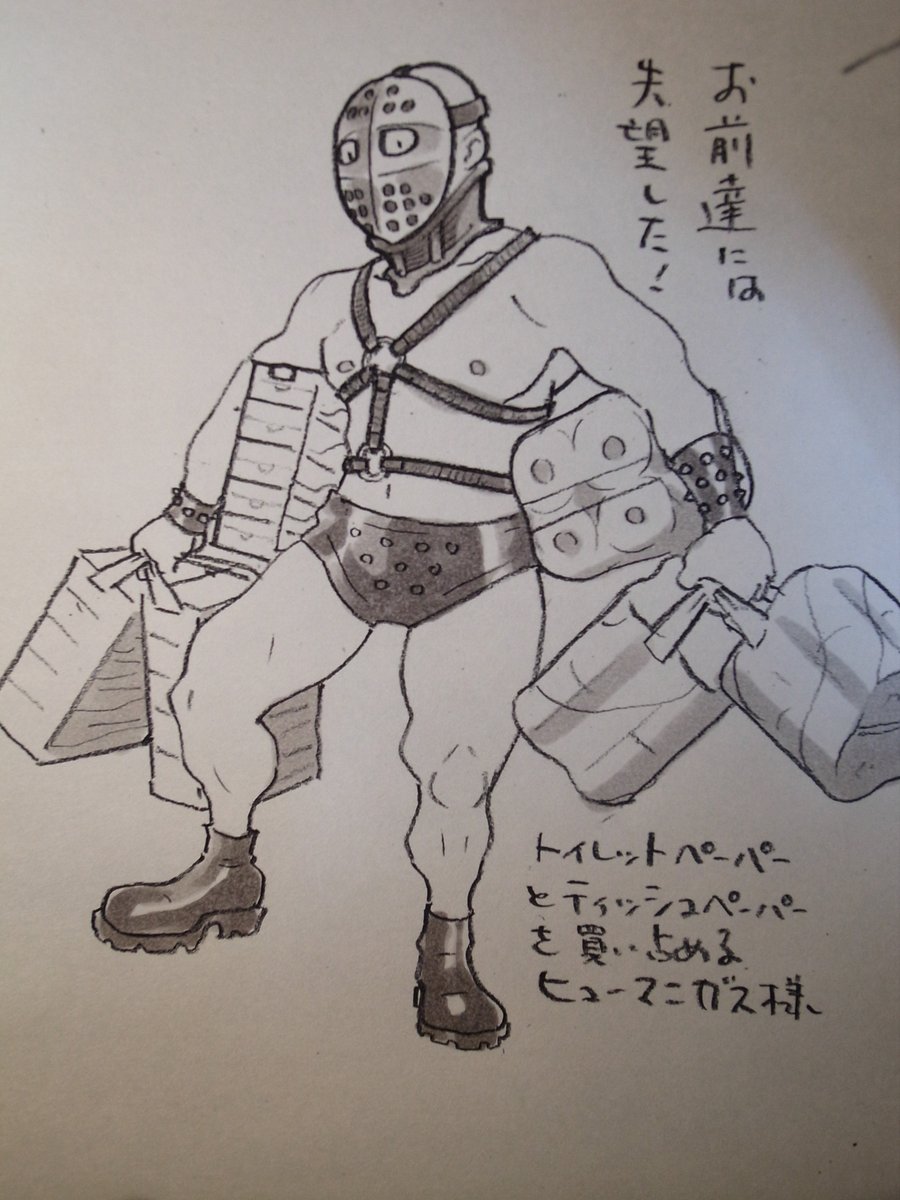 お前達には
失望した!
トイレットペーパー
とティッシュペーパー
を買い占める
ヒューマンガス様、